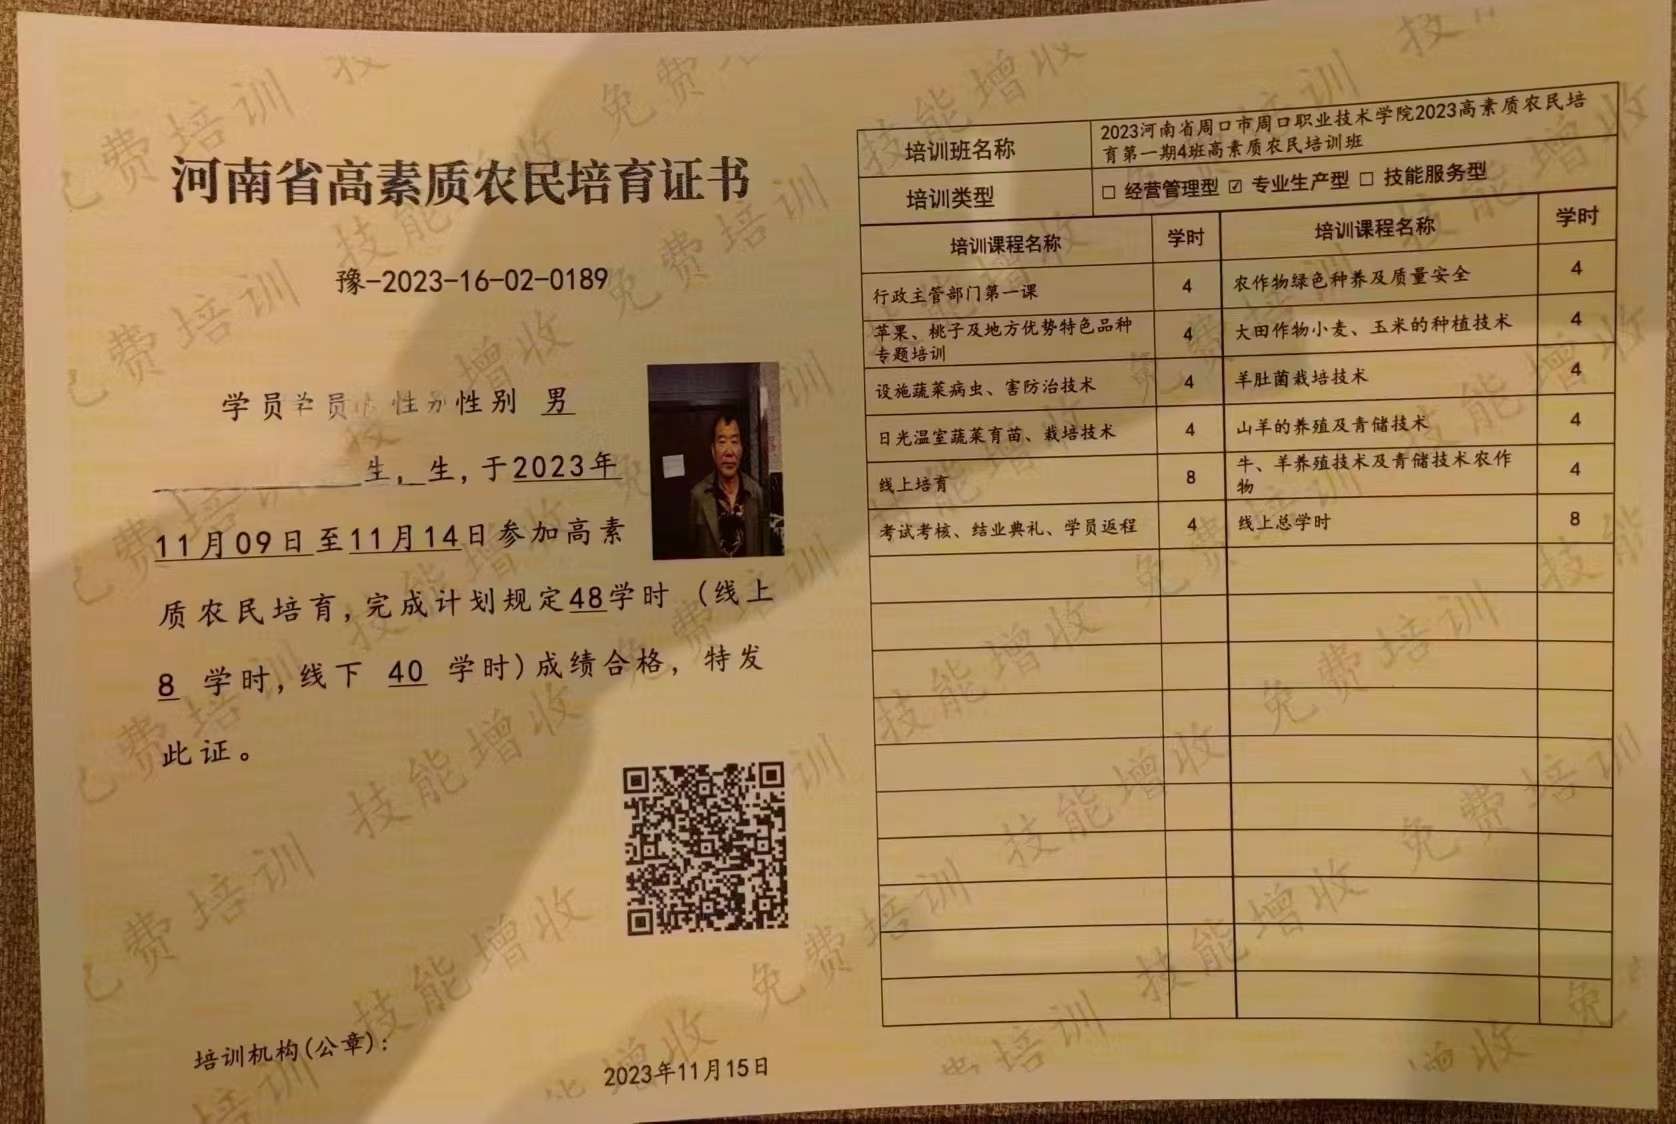 河南省高素质农民培育证书
豫-2023-16-02-0189
学员学员 性别性别 男
生，生，于2023年
11月09日至11月14日参加高素
质农民培育，完成计划规定48学时（线上
8 学时，线下 40 学时）成绩合格，特发
此证。
培训机构(公章)：
2023年11月15日
培训班名称 2023河南省周口市周口职业技术学院2023高素质农民培
育第一期4班高素质农民培训班
培训类型 □ 经营管理型 ☑ 专业生产型 □ 技能服务型
培训课程名称 学时 培训课程名称 学时
行政主管部门第一课 4 农作物绿色种养及质量安全 4
苹果、桃子及地方优势特色品种
专题培训 4 大田作物小麦、玉米的种植技术 4
设施蔬菜病虫、害防治技术 4 羊肚菌栽培技术 4
日光温室蔬菜育苗、栽培技术 4 山羊的养殖及青储技术 4
线上培育 8 牛、羊养殖技术及青储技术农作
物 4
考试考核、结业典礼、学员返程 4 线上总学时 8
免费培训 技能增收